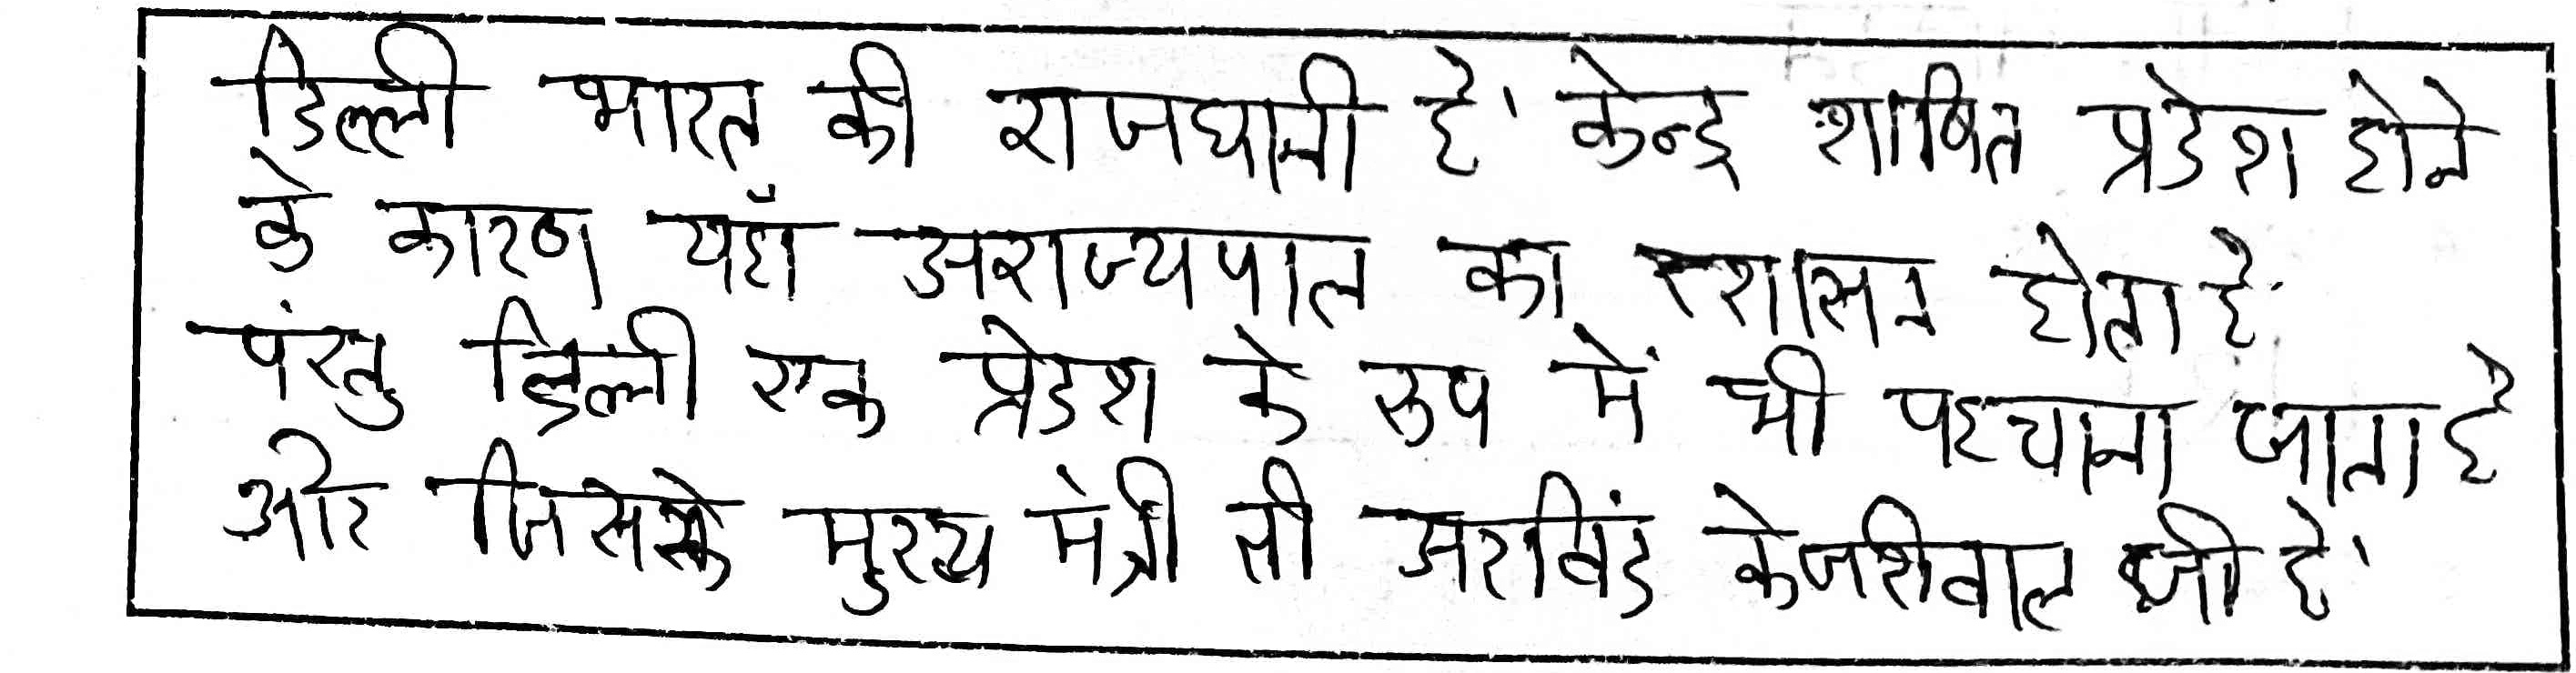 डिल्ली भारत की राजधानी है। केन्द्र शाषित प्रडेश होने
के कारण यहाँ अराज्यपाल का शासन होता है
पंरतु डिल्ली एक प्रेडश के रुप में भी पहचाना जाता है
और जिसके मुख्य मंत्री ती अरविंड केजरीवाल जी है।